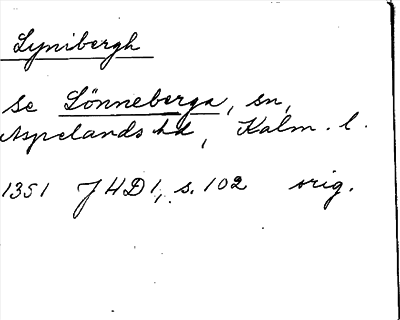 Lynibergh
se Lönneberga, sn,
Aspelands hd, Kalm. l.
1351 JHD 1, s. 102 orig.